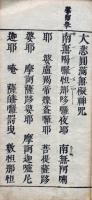 大悲圓滿無礙神咒
南無喝囉怛那哆囉夜耶　南無阿唎
耶　婆盧羯帝爍鉢囉耶　菩提薩哆
婆耶　摩訶薩哆婆耶　摩訶迦嚧尼
迦耶　唵　薩皤囉罰曳　數怛那怛